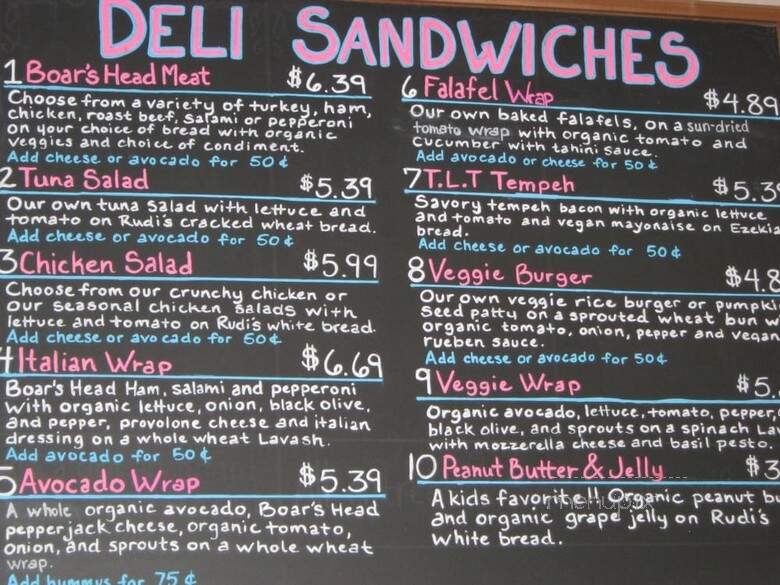 DELI SANDWICHES
1 Boar's Head Meat $6.39
Choose from a variety of turkey, ham,
chicken, roast beef, salami or pepperoni
on your choice of bread with organic
veggies and choice of condiment.
Add cheese or avocado for 50¢
2 Tuna Salad $5.39
Our own tuna salad with lettuce and
tomato on Rudi's cracked wheat bread.
Add cheese or avocado for 50¢
3 Chicken Salad $5.99
Choose from our crunchy chicken or
our seasonal chicken salads with
lettuce and tomato on Rudi's white bread.
Add cheese or avocado for 50¢
4 Italian Wrap $6.69
Boar's Head Ham, salami and pepperoni
with organic lettuce, onion, black olive,
and pepper, provolone cheese and italian
dressing on a whole wheat Lavash.
Add avocado for 50¢
5 Avocado Wrap $5.39
A whole organic avocado, Boar's Head
pepperjack cheese, organic tomato,
onion, and sprouts on a whole wheat
wrap.
Add hummus for 75¢
6 Falafel Wrap $4.89
Our own baked falafels, on a sun-dried
tomato wrap with organic tomato and
cucumber with tahini sauce.
Add avocado or cheese for 50¢
7 T.L.T Tempeh $5.3
Savory tempeh bacon with organic lettuce
and tomato and vegan mayonaise on Ezekia
bread.
Add cheese or avocado for 50¢
8 Veggie Burger $4.8
Our own veggie rice burger or pumpki
seed patty on a sprouted wheat bun w
organic tomato, onion, pepper and vegan
rueben sauce.
Add cheese or avocado for 50¢
9 Veggie Wrap $5.
Organic avocado, lettuce, tomato, pepper,
black olive, and sprouts on a spinach Lav
with mozzerella cheese and basil pesto.
10 Peanut Butter & Jelly $3
A kids favorite!! Organic peanut b
and organic grape jelly on Rudi's
white bread.
menupix